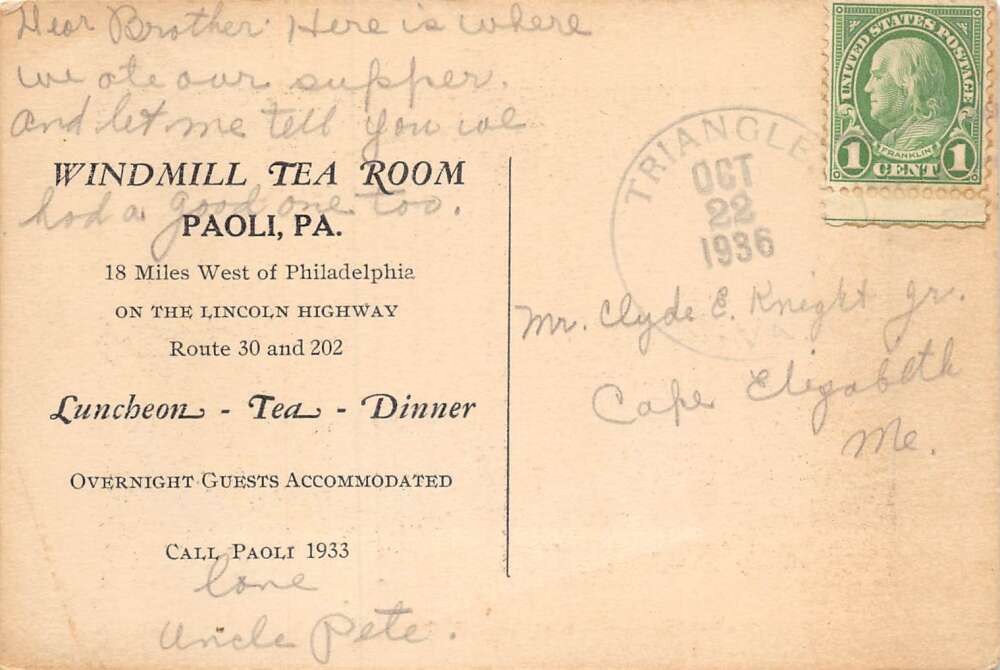 Dear Brother: Here is where
we ate our supper.
and let me tell you we
WINDMILL TEA ROOM
had a good one too.
PAOLI, PA.
18 Miles West of Philadelphia
ON THE LINCOLN HIGHWAY
Route 30 and 202
Luncheon - Tea - Dinner
OVERNIGHT GUESTS ACCOMMODATED
CALL PAOLI 1933
Love
Uncle Pete.
UNITED STATES POSTAGE
FRANKLIN
1 CENT 1
TRIANGLE
OCT
22
1936
Mr. Clyde E. Knight Jr.
Cape Elizabeth
Me.